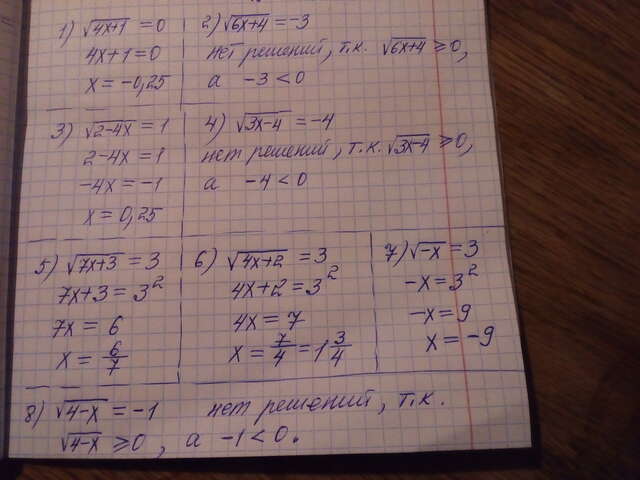 1) √4x+1 = 0
4x+1=0
x = -0,25
2) √6x+4 = -3
нет решений, т.к. √6x+4 ⩾0,
а -3 < 0
3) √2-4x = 1
2-4x = 1
-4x = -1
x = 0,25
4) √3x-4 = -4
нет решений, т.к. √3x-4 ⩾0,
а -4 < 0
5) √7x+3 = 3
7x+3 = 3²
7x = 6
x = 6/7
6) √4x+2 = 3
4x+2=3²
4x = 7
x = 7/4 = 1 3/4
7) √-x = 3
-x = 3²
-x = 9
x = -9
8) √4-x = -1 нет решений, т.к.
√4-x ⩾0, а -1 < 0.